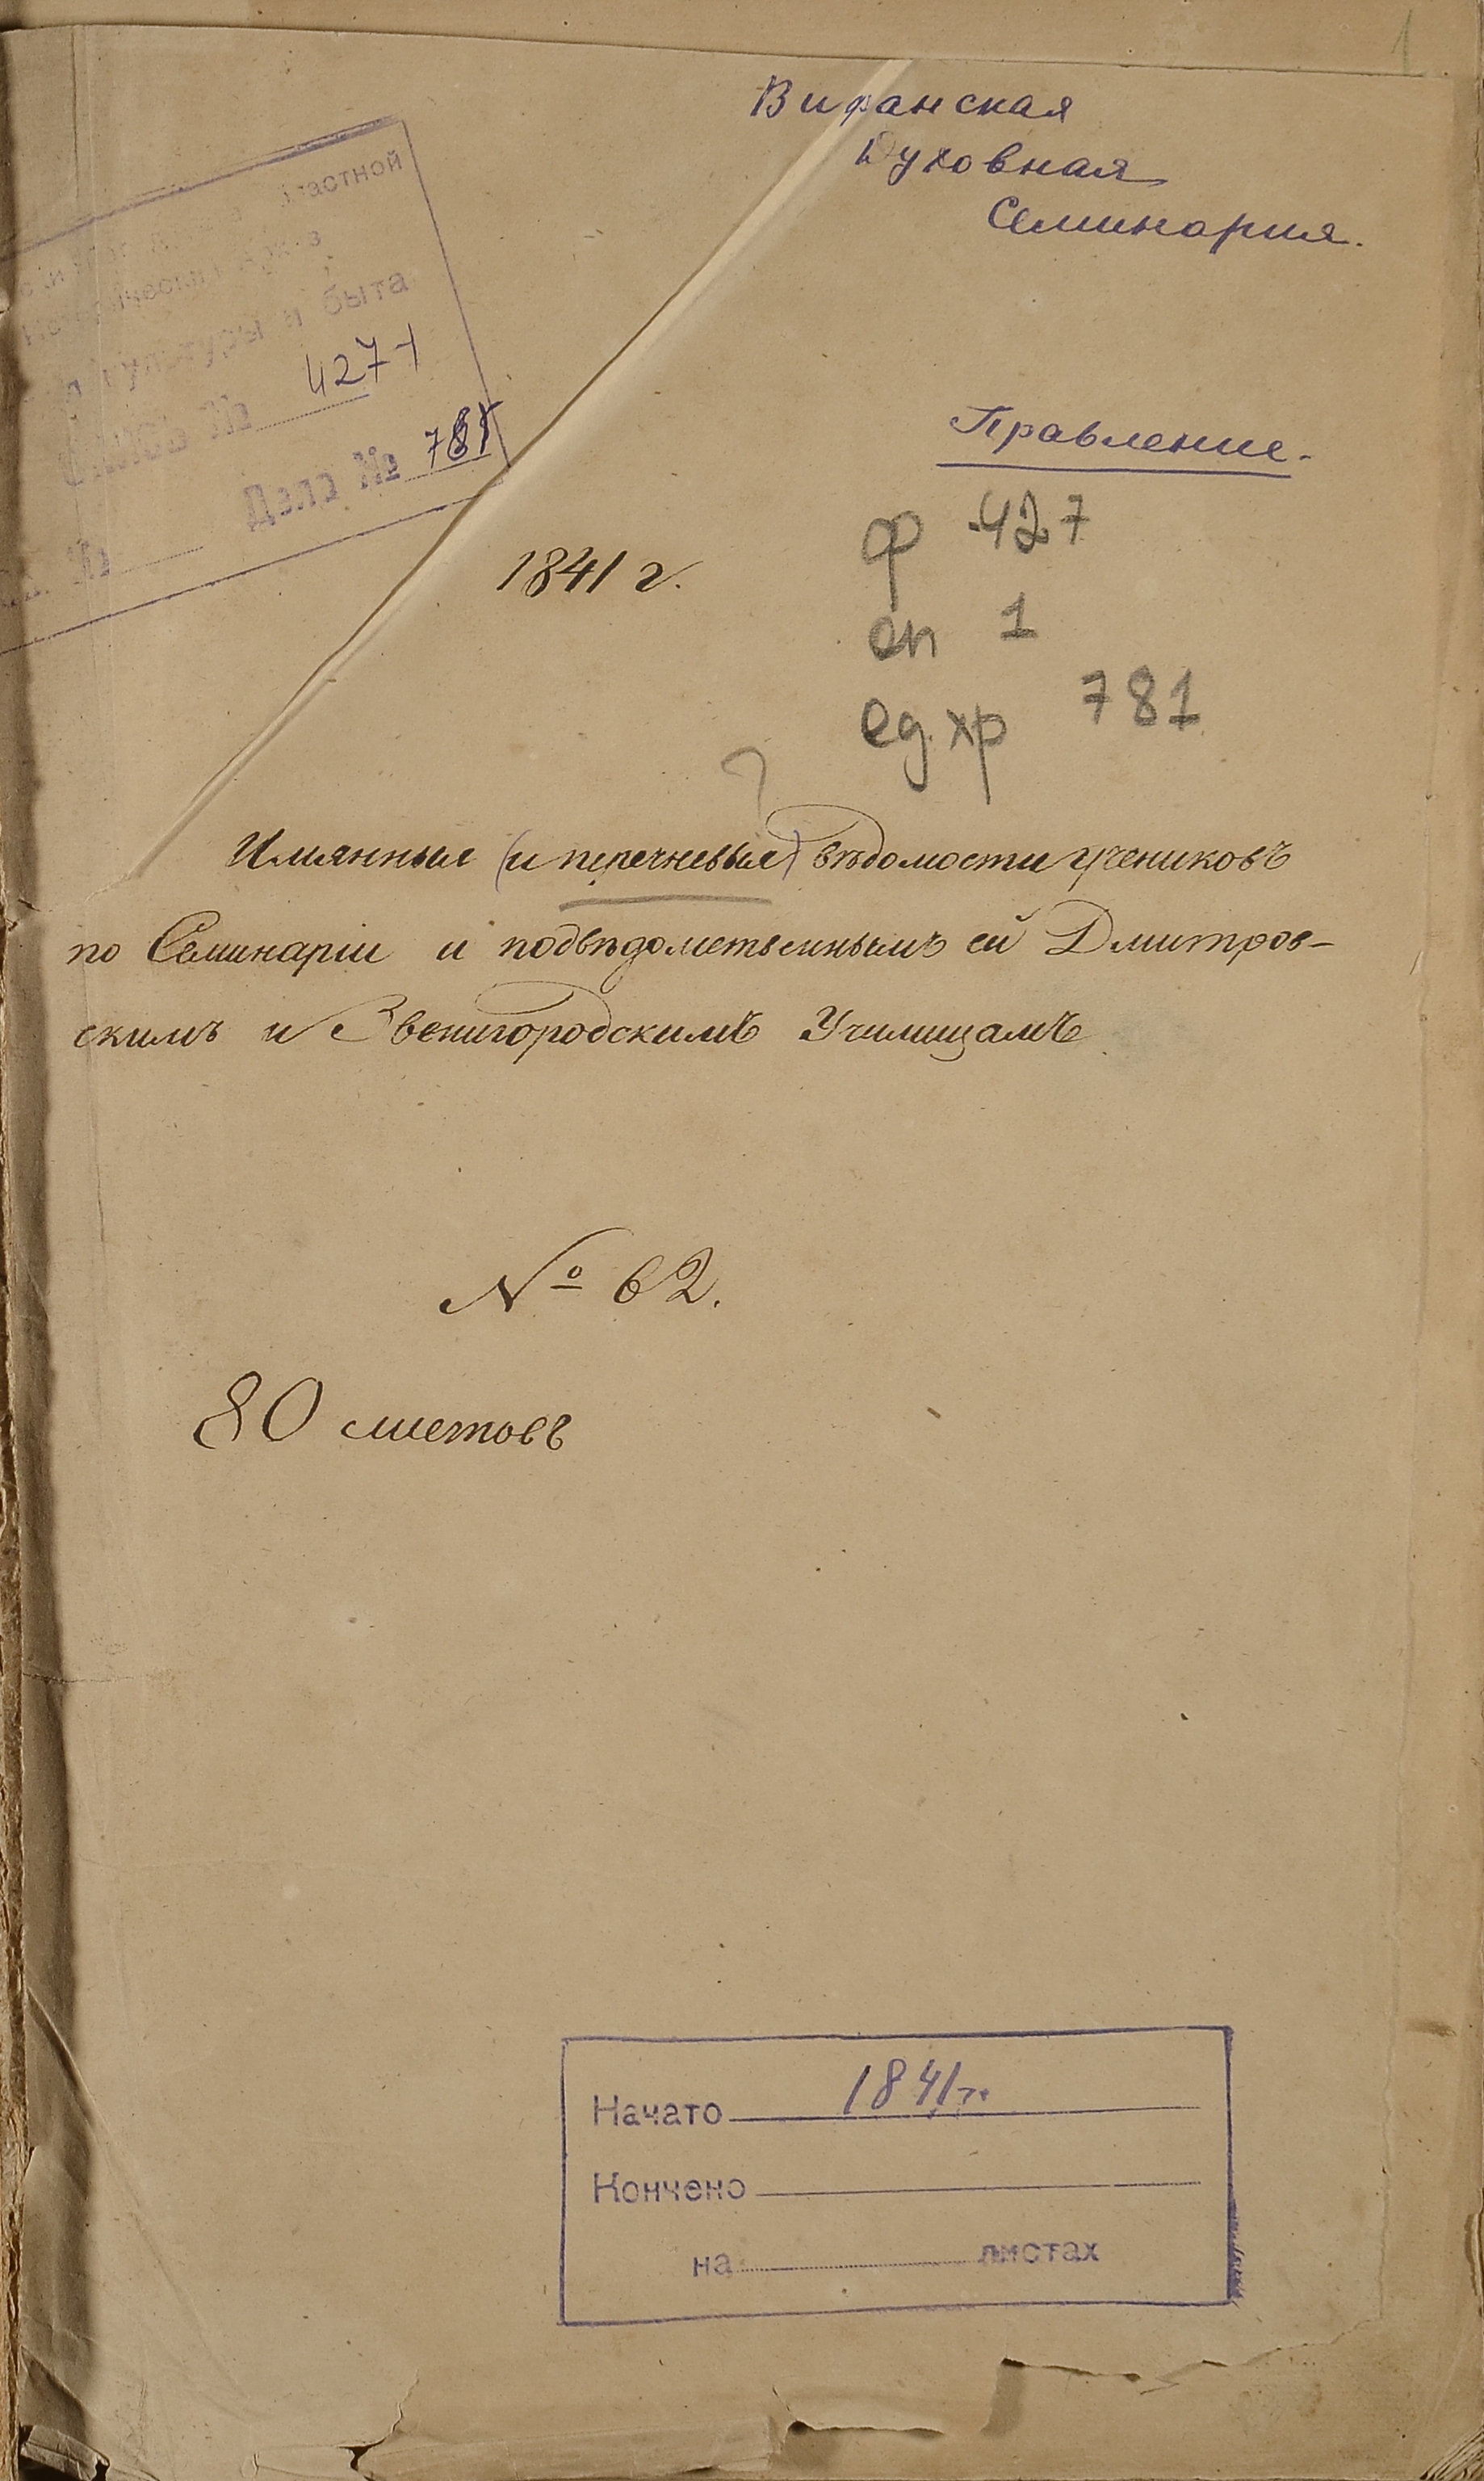 1
Вифанская
Духовная
Семинария.
культуры и быта
427-1
Дело № 781
№
Правление.
ф 427
1841 г.
оп 1
ед. хр 781
?
Имянные (и перечневые) вѣдомости учениковъ
по Семинаріи и подвѣдомственнымъ ей Дмитров-
скимъ и Звенигородскимъ Училищамъ
№ 62.
80 листовъ
Начато 1841 г.
Кончено
на листах